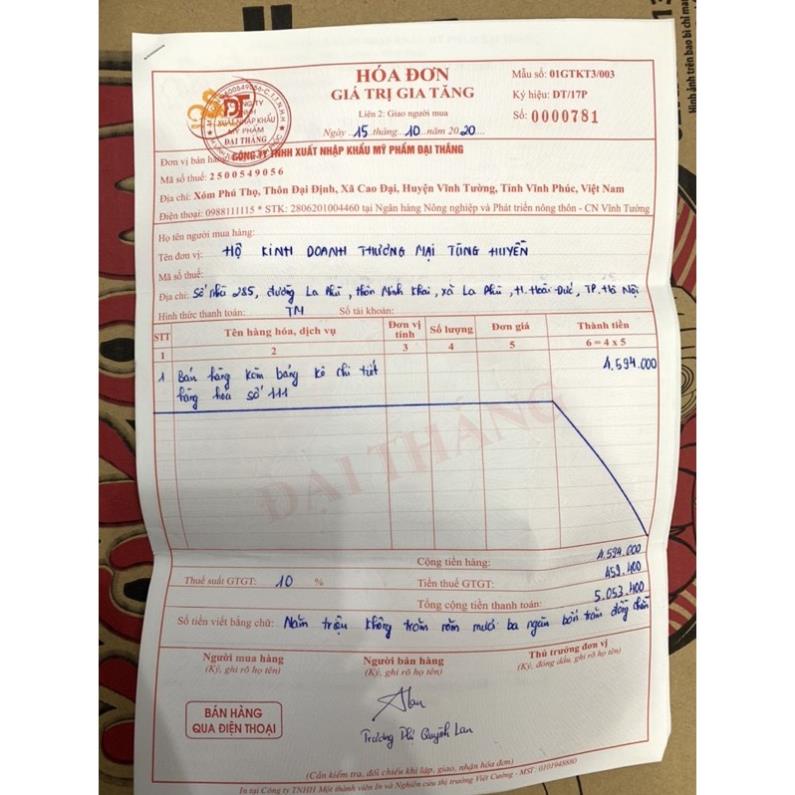 HÓA ĐƠN
GIÁ TRỊ GIA TĂNG
Liên 2: Giao người mua
Ngày 15 tháng 10 năm 2020
Mẫu số: 01GTKT3/003
Ký hiệu: DT/17P
Số: 0000781
XUẤT NHẬP KHẨU
MỸ PHẨM
ĐẠI THẮNG
Đơn vị bán hàng: CÔNG TY TNHH XUẤT NHẬP KHẨU MỸ PHẨM ĐẠI THẮNG
Mã số thuế: 2500549056
Địa chỉ: Xóm Phú Thọ, Thôn Đại Định, Xã Cao Đại, Huyện Vĩnh Tường, Tỉnh Vĩnh Phúc, Việt Nam
Điện thoại: 0988111115 * STK: 2806201004460 tại Ngân hàng Nông nghiệp và Phát triển nông thôn - CN Vĩnh Tường
Họ tên người mua hàng:
Tên đơn vị: HỘ KINH DOANH THƯƠNG MẠI TÙNG HUYỀN
Mã số thuế:
Địa chỉ: Số nhà 285, đường La Phù, thôn Minh Khai, xã La Phù, H. Hoài Đức, TP. Hà Nội
Hình thức thanh toán: TM Số tài khoản:
STT Tên hàng hóa, dịch vụ Đơn vị tính Số lượng Đơn giá Thành tiền
1 2 3 4 5 6 = 4 x 5
1 Bán hàng kèm bảng kê chi tiết 4.594.000
hàng hóa số 111
ĐẠI THẮNG
Cộng tiền hàng: 4.594.000
Thuế suất GTGT: 10 % Tiền thuế GTGT: 459.400
Tổng cộng tiền thanh toán: 5.053.400
Số tiền viết bằng chữ: Năm triệu không trăm năm mươi ba ngàn bốn trăm đồng chẵn
Người mua hàng Người bán hàng Thủ trưởng đơn vị
(Ký, ghi rõ họ tên) (Ký, ghi rõ họ tên) (Ký, đóng dấu, ghi rõ họ tên)
BÁN HÀNG
QUA ĐIỆN THOẠI
Trương Thị Quỳnh Lan
(Cần kiểm tra, đối chiếu khi lập, giao, nhận hóa đơn)
In tại Công ty TNHH Một thành viên In và Nghiên cứu thị trường Việt Cường - MST: 0101948880
Hình ảnh trên bao bì chỉ